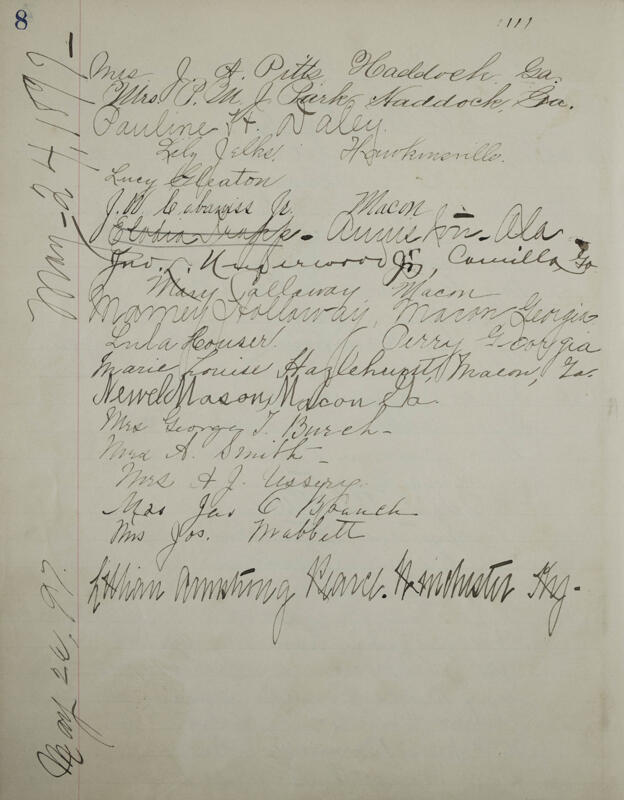 8
May 24, 1897
Mrs. J. A. Pitts Haddock, Ga.
Mrs. P. M. J. Park Haddock, Ga.
Pauline H. Daley
Lily Jelks. Hawkinsville.
Lucy Gleaton
J. W. Cabaniss Jr. Macon
Anniston - Ala
Jno. Underwood Jr, Camilla Ga
Mary Callaway Macon
Mamey Holloway, Macon Georgia
Lula Houser. Perry Georgia
Marie Louise Hazlehurst, Macon, Ga.
Newel Mason, Macon Ga.
Mrs George T. Burch -
Mrs A. Smith -
Mrs A J. Ussery.
Mrs C Branch
Mrs Jos. Mabbett
May 26, 97.
Lillian Armstrong Pearce. Winchester Ky -